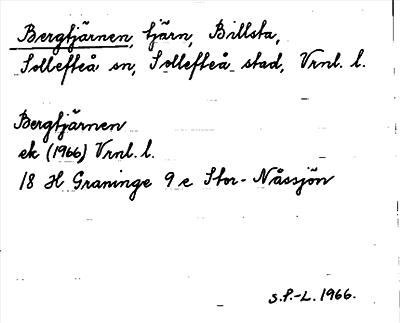 Bergtjärnen, tjärn, Billsta,
Sollefteå sn, Sollefteå stad, Vrnl. l.
Bergtjärnen
ek (1966) Vrnl. l.
18 H Graninge 9 e Stor-Nåssjön
S.P.-L. 1966.